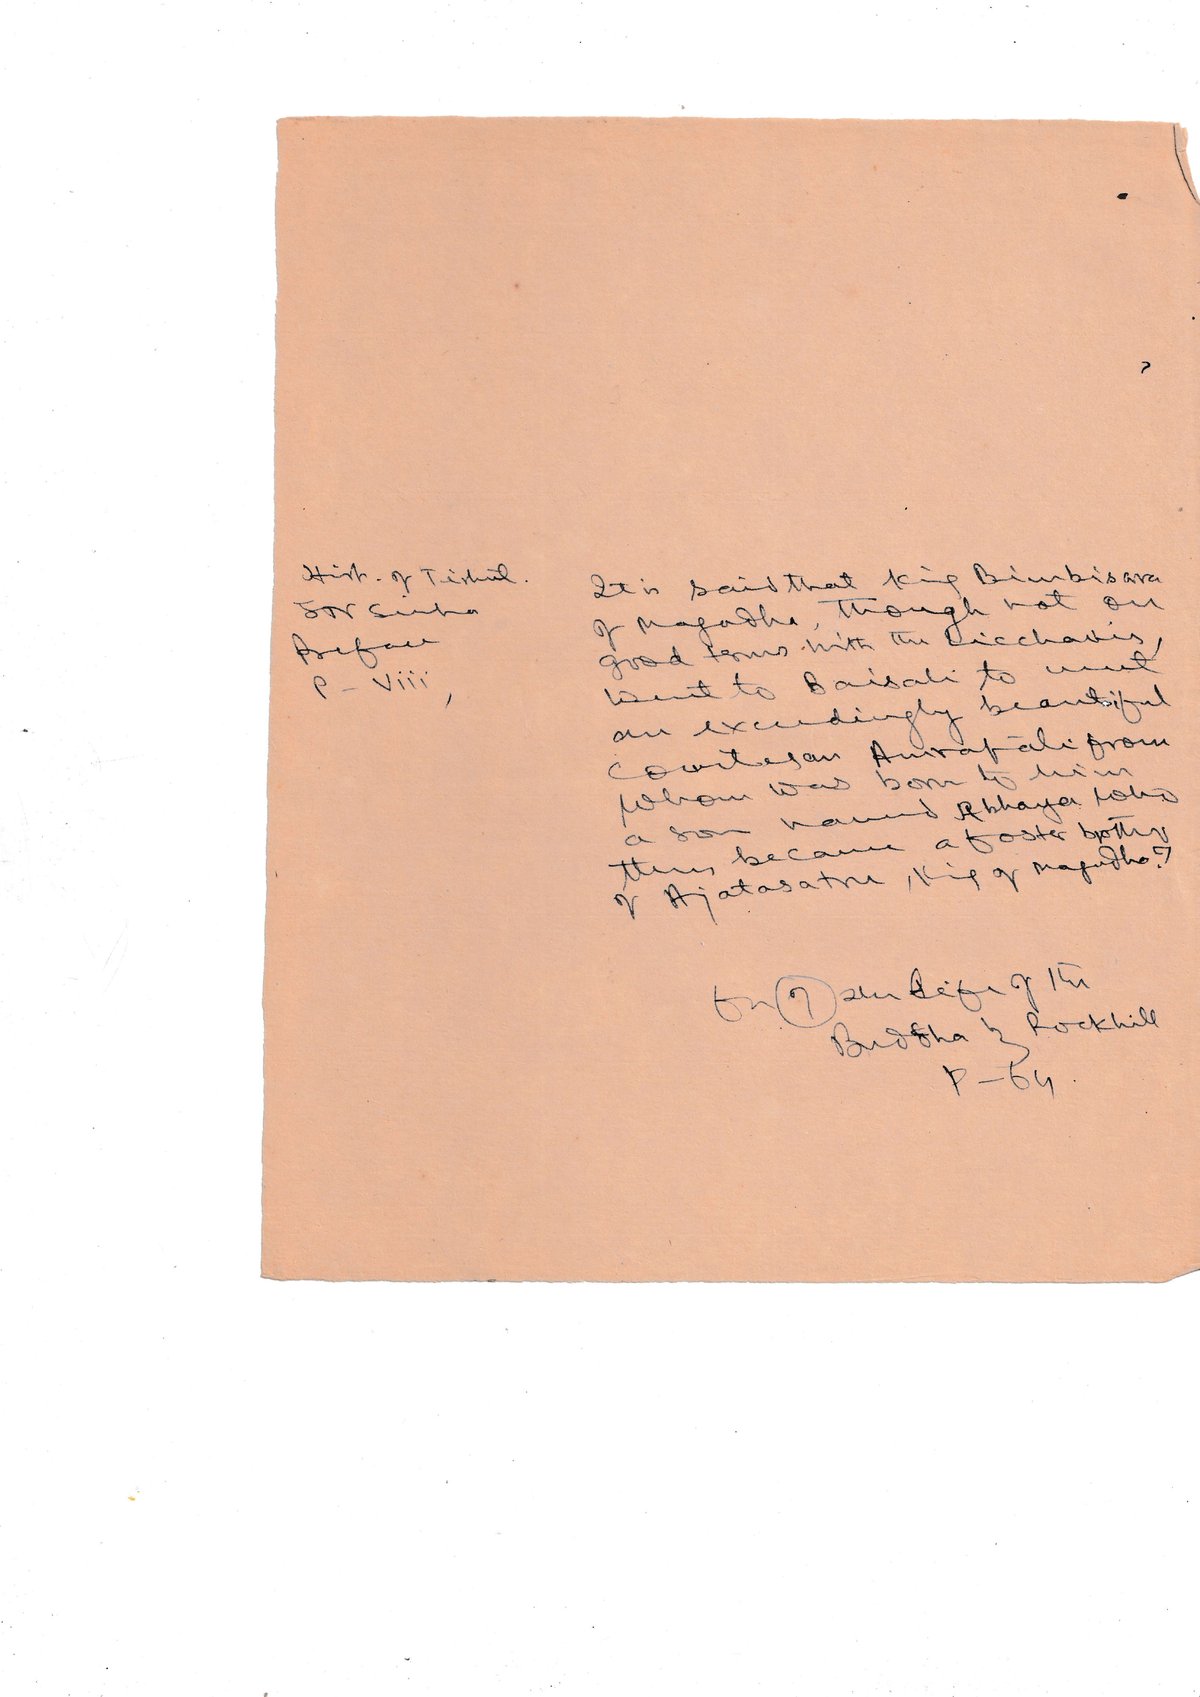 Hist. of Tirhut.
SN Sinha
Preface
P - viii,
It is said that King Bimbisara
of Magadha, though not on
good terms with the Licchavis,
went to Baisali to meet
an exceedingly beautiful
courtesan Amrapali from
whom was born to him
a son named Abhaya who
thus became a foster brother
of Ajatasatru, King of Magadha.7
fn 7 The Life of the
Buddha by Rockhill
P - 64.